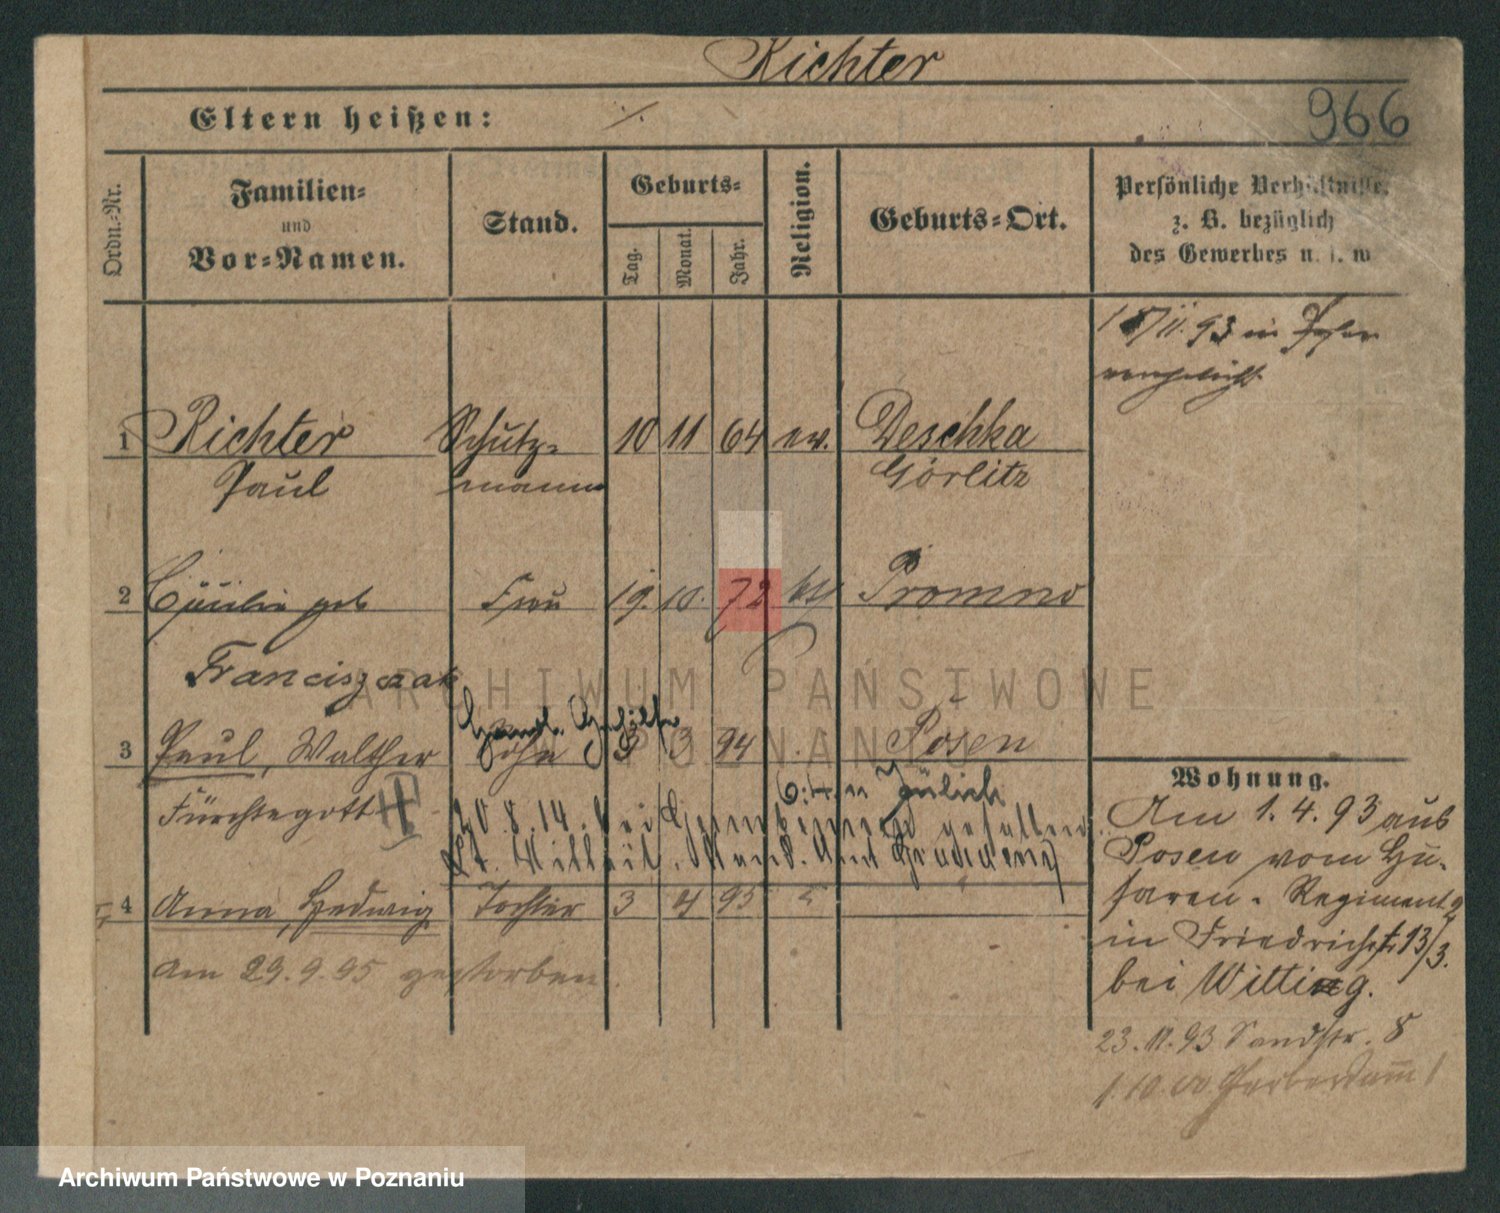 Richter
966
Eltern heißen: ./.
Ordn.-Nr.
Familien-
und
Vor-Namen.
Stand.
Geburts-
Tag.
Monat.
Jahr.
Religion.
Geburts-Ort.
Persönliche Verhältnisse,
z. B. bezüglich
des Gewerbes u. s. w
11.93 in
1 Richter Schutz- 10 11 64 ev. Deschka
Paul mann Görlitz
2 Cäcilie geb Frau 19. 10. 72 Promno
Franciszczak
3 Paul, Walther Sohn 3 94 Posen
Fürchtegott
20.8.14. bei Gumbinnen gefallen
4 Anna, Hedwig Tochter 3 4 95
am 29.9.95 gestorben
Wohnung.
Am 1.4.93 aus
Posen vom Hu-
saren-Regiment 2
in Friedrichstr 13/3.
bei Witting.
23.11.93 Sandstr. 8
1.10.00. Gerberdamm 1
ARCHIWUM PAŃSTWOWE
W POZNANIU
Archiwum Państwowe w Poznaniu